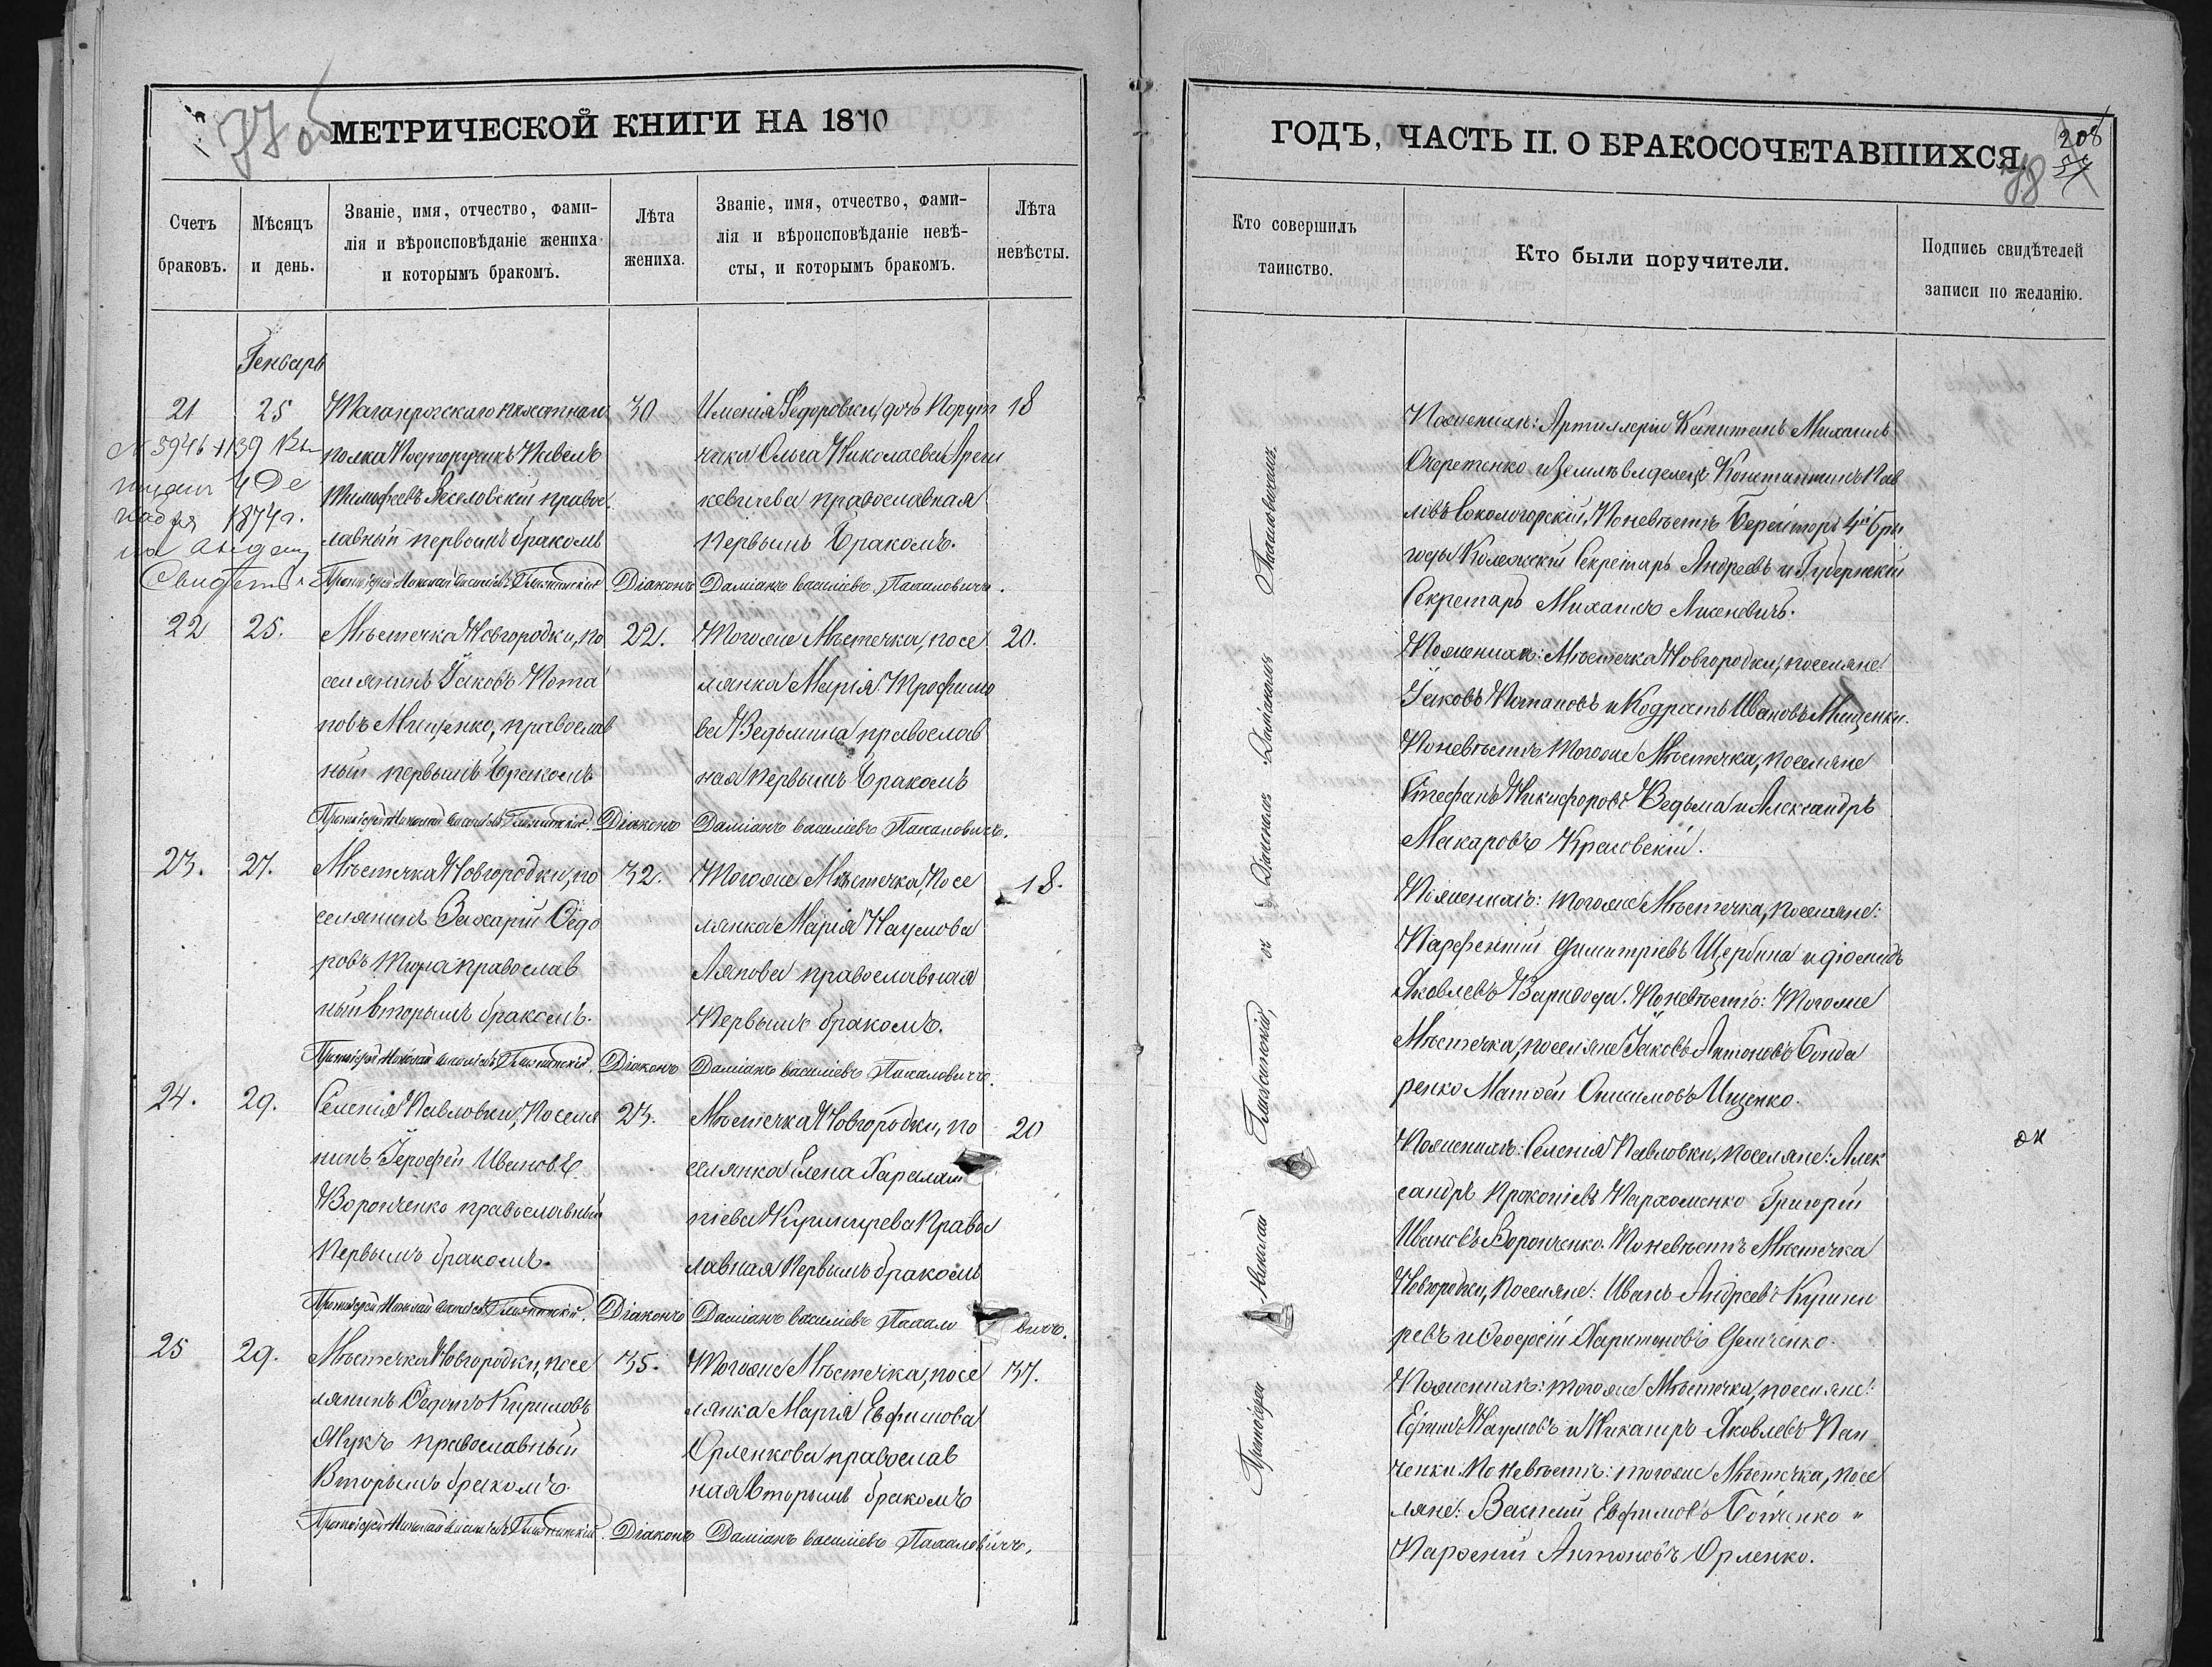 77 об
МЕТРИЧЕСКОЙ КНИГИ НА 1870
Счетъ браковъ.
Мѣсяцъ и день.
Званіе, имя, отчество, фами-
лія и вѣроисповѣданіе жениха
и которымъ бракомъ.
Лѣта жениха.
Званіе, имя, отчество, фами-
лія и вѣроисповѣданіе невѣ-
сты, и которымъ бракомъ.
Лѣта невѣсты.
Генварь
21 25
Таганрогскаго пѣхотнаго
полка Подпоручикъ Павелъ
Тимофеевъ Веселовскій правос
лавный первымъ бракомъ
30
Имѣнія Федоровки, дочь Порут
чика Ольга Николаева
православная
первымъ бракомъ.
18
№ 5946
1874 г.
Свидет.
Протоіерей Николай Василіевъ Діаконъ Даміанъ Василіевъ Пахаловичъ.
22 25.
Мѣстечка Новгородки, по
селянинъ Іаковъ Пота
повъ Мищенко, православ
ный первымъ бракомъ
22.
Тогоже Мѣстечка, посе
лянка Марія Трофимо
ва Ведьмина православ
ная первымъ бракомъ
20.
Протоіерей Николай Василіевъ Діаконъ Даміанъ Василіевъ Пахаловичъ.
23. 27.
Мѣстечка Новгородки, по
селянинъ Захарій Ѳедо
ровъ Тюра православ
ный вторымъ бракомъ.
32.
Тогоже Мѣстечка, посе
лянка Марія Наумова
Ляпова православная
Первымъ бракомъ.
18.
Протоіерей Николай Василіевъ Діаконъ Даміанъ Василіевъ Пахаловичъ.
24. 29.
Селенія Павловки, Поселя
нинъ Іерофей Ивановъ
Воронченко православный
Первымъ бракомъ.
23.
Мѣстечка Новгородки, по
селянка Елена Харалам
піева Кушнирева Правос
лавная Первымъ бракомъ
20
Протоіерей Николай Василіевъ Діаконъ Даміанъ Василіевъ Пахаловичъ.
25 29.
Мѣстечка Новгородки, посе
лянинъ Ѳедотъ Кириловъ
Жукъ православный
Вторымъ бракомъ.
35.
Тогоже Мѣстечка, посе
лянка Марія Евфимова
Орленкова православ
ная вторымъ бракомъ
37.
Протоіерей Николай Василіевъ Діаконъ Даміанъ Василіевъ Пахаловичъ.
ГОДЪ, ЧАСТЬ II. О БРАКОСОЧЕТАВШИХСЯ.
208
78
Кто совершилъ таинство.
Кто были поручители.
Подпись свидѣтелей
записи по желанію.
Протоіерей Николай съ Діакономъ Даміаномъ Пахаловичемъ.
По женихѣ: Артиллеріи Капитанъ Михаилъ
Очеретенко и Землѣвладелецъ Константинъ Пав
ловъ Сокологорскій, По невѣстѣ Берейторъ 4й Бри
гады Колежскій Секретарь Андреевъ и Губернскій
Секретарь Михаилъ
По женихѣ: Мѣстечка Новгородки, поселяне:
Іаковъ Потаповъ и Кодратъ Ивановъ Мищенки.
По невѣстѣ Тогоже Мѣстечка, поселяне
Стефанъ Никифоровъ Ведьма и Александръ
Макаровъ Красовскій.
По женихѣ: тогоже Мѣстечка, поселяне:
Парфеній Димитріевъ Щербина и Діомидъ
Яковлевъ Варивода. По невѣстѣ: Тогоже
Мѣстечка, поселяне Іаковъ Антоновъ Бонда
ренко Матѳей Онисимовъ Ищенко.
По женихѣ: Селенія Павловки, поселяне: Алек
сандръ Прокопіевъ Пархоменко Григорій
Ивановъ Воронченко. По невѣстѣ Мѣстечка
Новгородки, поселяне: Иванъ Андреевъ Кушни
ревъ и Ѳеофій Харитоновъ Демченко.
По женихѣ: тогоже Мѣстечка, поселяне:
Ефимъ Наумовъ и Никаноръ Яковлевъ Пан
ченки. По невѣстѣ: тогоже Мѣстечка, посе
ляне: Василій Евфимовъ Бойченко и
Парѳеній Антоновъ Орленко.